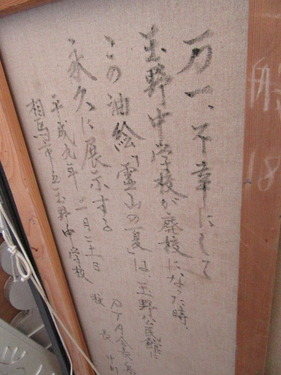 万一、不幸にして
玉野中学校が廃校になった時
この油絵「霊山の夏」は、玉野公民館に
永久に展示する
平成九年 二月二十一日
相馬市立玉野中学校
校長
PTA会長